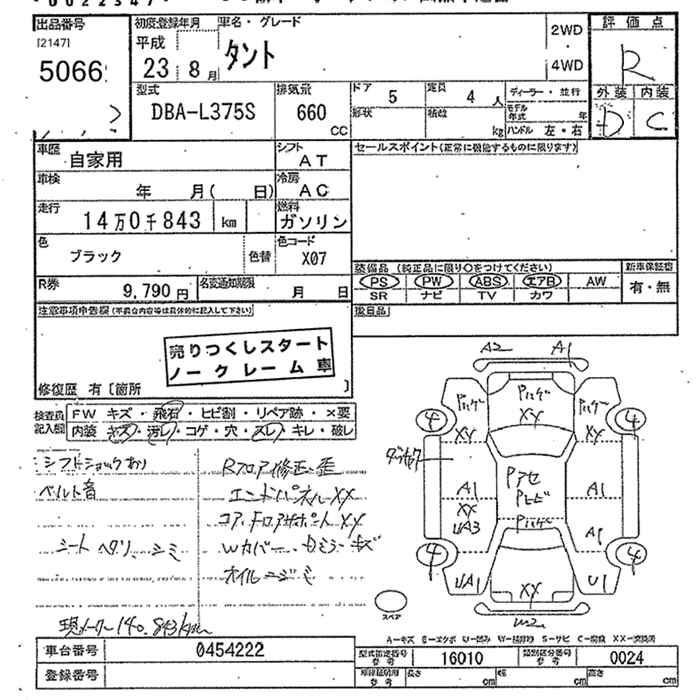 出品番号 初度登録年月 車名・グレード 評価点
[2147] 平成 2WD
5066 23 8月 タント 4WD R
型式 排気量 ドア 定員 ディーラー・並行 外装 内装
DBA-L375S 660 5 4人 モデル年式 年 D C
CC 形状 積載 kg ハンドル 左・右
車歴 自家用 シフト AT セールスポイント(正常に機能するものに限ります)
車検 年 月( 日) 冷房 AC
走行 14万0千843 km 燃料 ガソリン
色 ブラック 色替 色コード X07
装備品 (純正品に限り○をつけてください) 新車保証書
R券 9,790円 名変通知期限 月 日 PS PW ABS エアB AW 有・無
SR ナビ TV カワ
注意事項申告欄(不具合内容等は具体的に記入して下さい) 後日品
売りつくしスタート
ノークレーム車
修復歴 有[箇所 ]
検査員記入欄 FW キズ・飛石・ヒビ割・リペア跡・×要
内装 キズ・汚レ・コゲ・穴・スレ・キレ・破レ
シフトショック有り Rフロア修正歪
ベルト音 エンドパネルXX
コアF.ロアサポートXX
シート ヘタリ、シミ Wカバー、
オイルニジミ
現メーター140.843km
A2 A1
XX XX XX
4 4
A1 A1
XX
UA3 A1
4 4
UA1 XX U1
W2
スペア
A-キズ E-エクボ U-凹み W-補修跡 S-サビ C-腐蝕 XX-交換済
車台番号 0454222 型式指定番号 参考 16010 類別区分番号 参考 0024
登録番号 参考 長さ cm 幅 cm 高さ cm